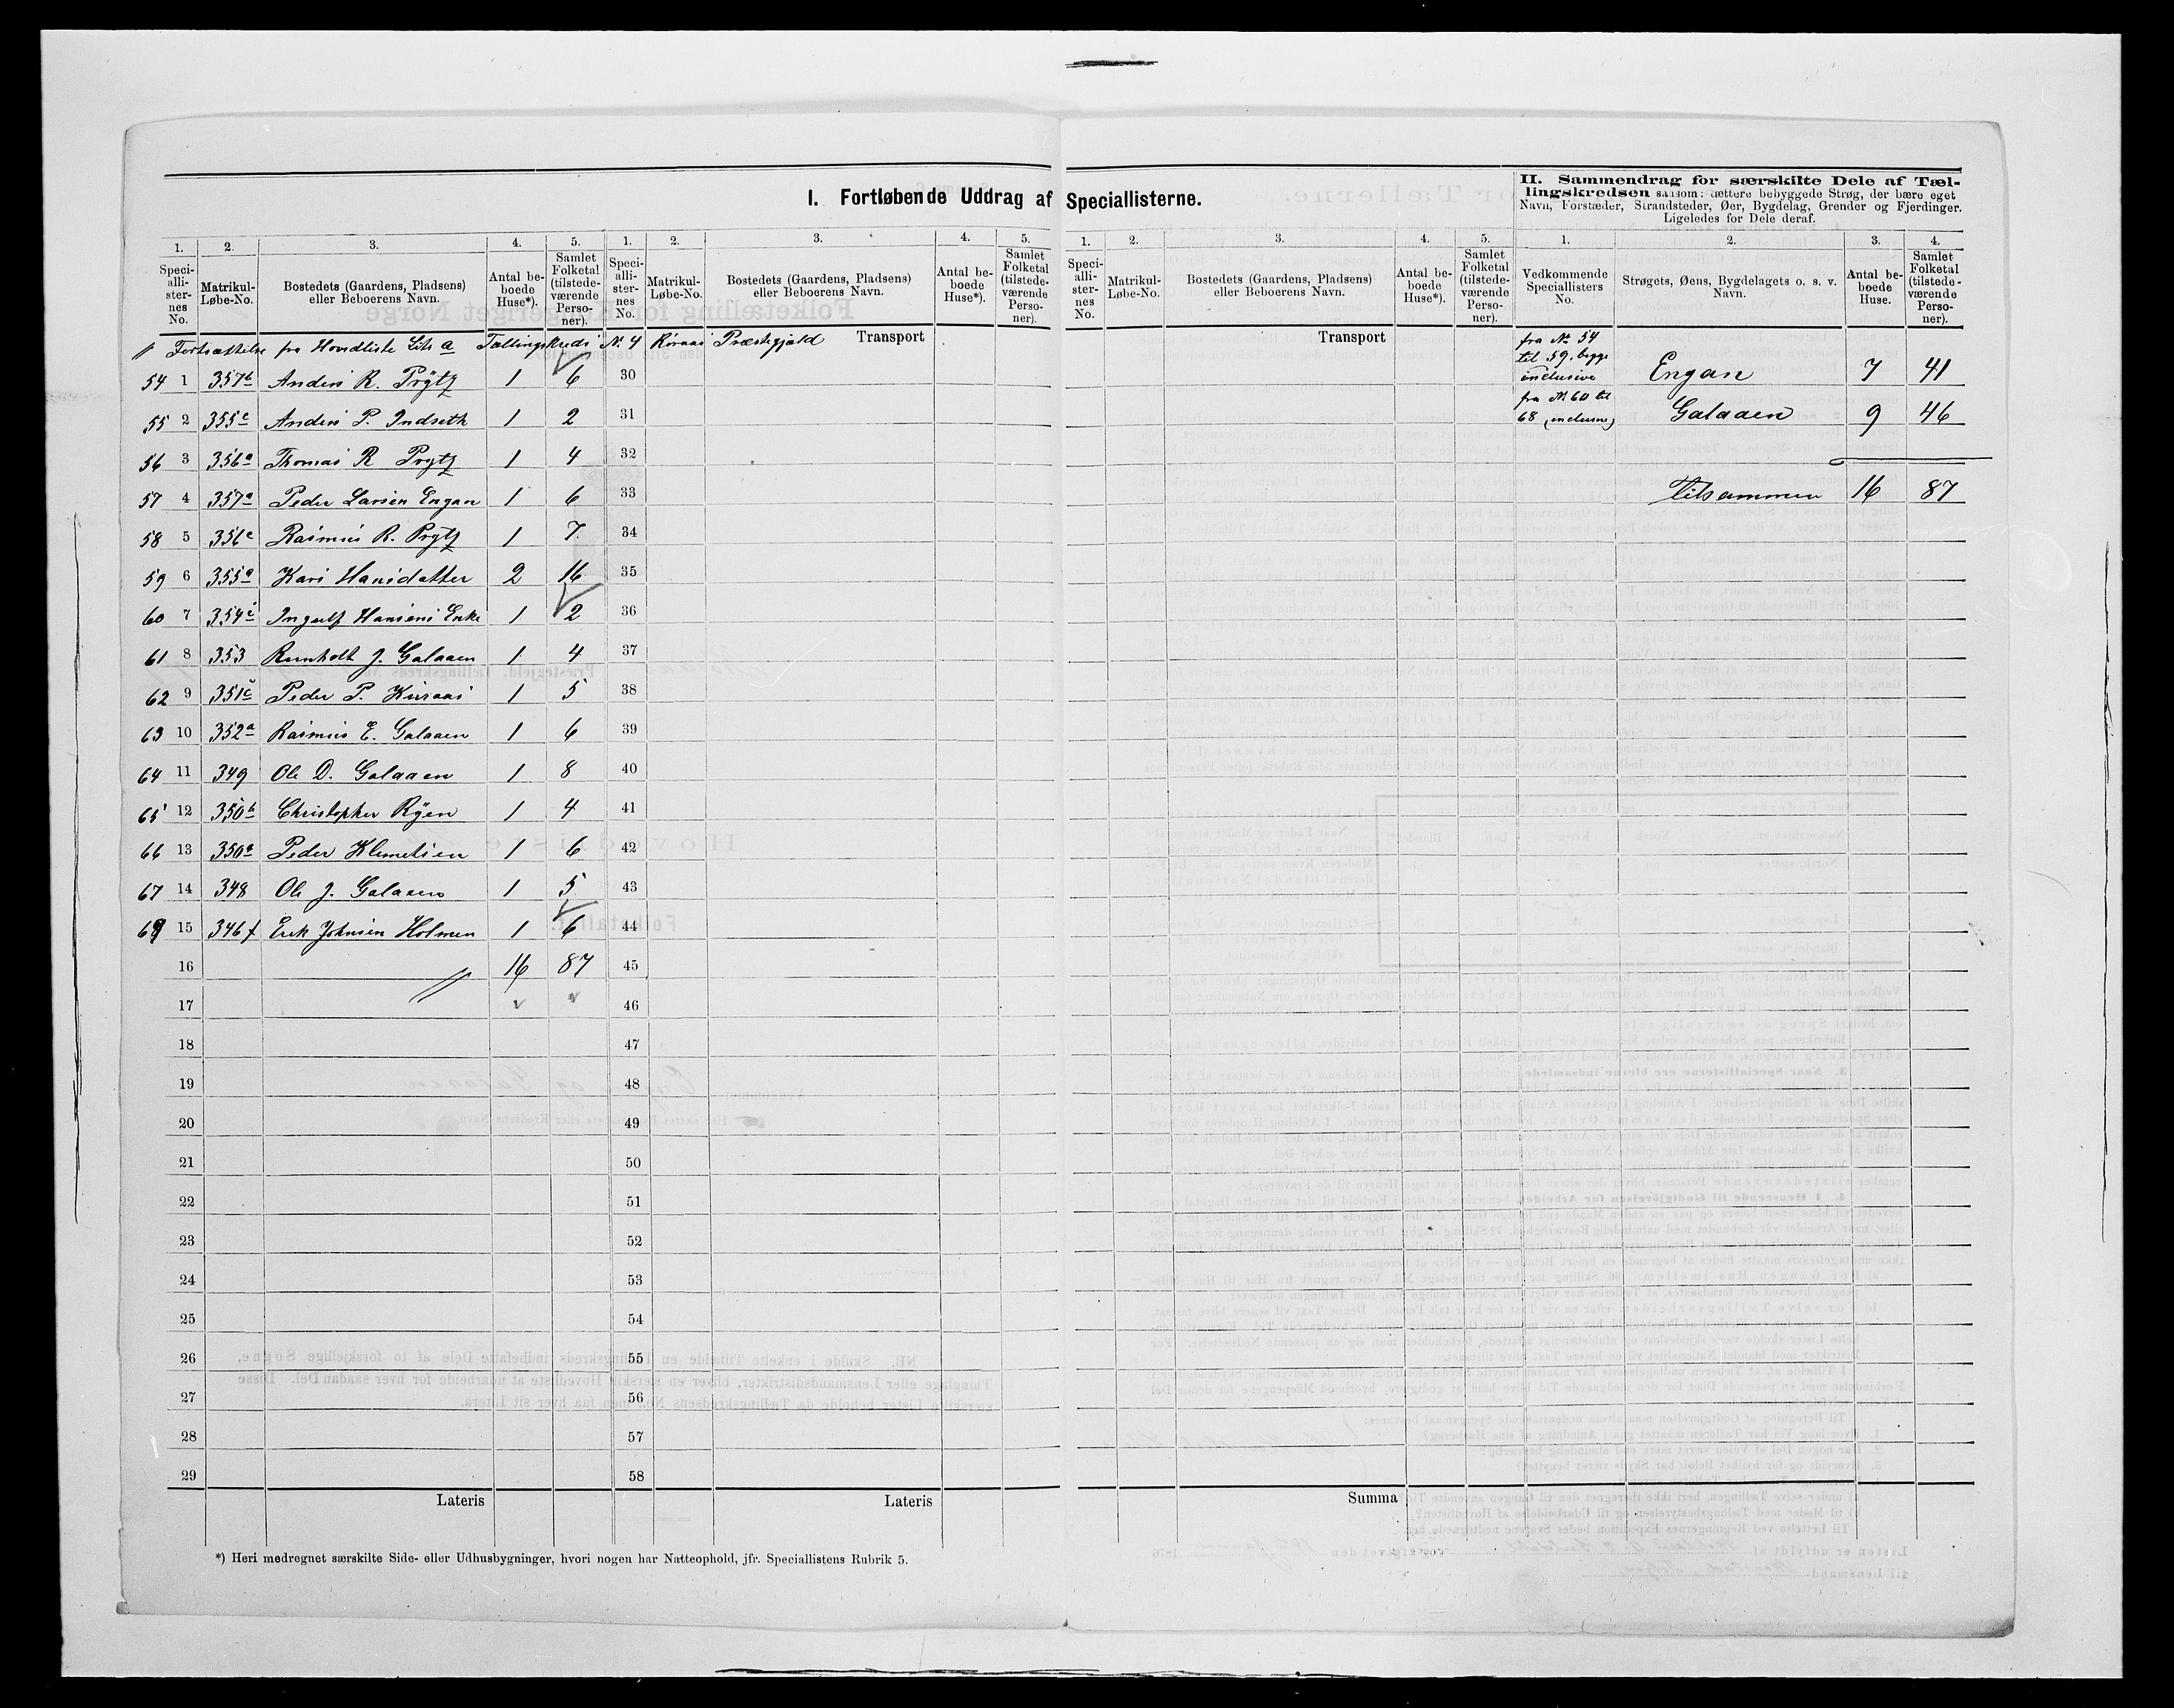 I. Fortløbende Uddrag af Speciallisterne.
II. Sammendrag for særskilte Dele af Tæl-
lingskredsen saasom: tættere bebyggede Strøg, der bære eget
Navn, Forstæder, Strandsteder, Øer, Bygdelag, Grender og Fjerdinger.
Ligeledes for Dele deraf.
1. 2. 3. 4. 5. 1. 2. 3. 4. 5. 1. 2. 3. 4. 5. 1. 2. 3. 4.
Speci-alli-ster-nes No. Matrikul-Løbe-No. Bostedets (Gaardens, Pladsens) eller Beboerens Navn. Antal be-boede Huse*). Samlet Folketal (tilstede-værende Perso-ner).
Speci-alli-ster-nes No. Matrikul-Løbe-No. Bostedets (Gaardens, Pladsens) eller Beboerens Navn. Antal be-boede Huse*). Samlet Folketal (tilstede-værende Perso-ner).
Speci-alli-ster-nes No. Matrikul-Løbe-No. Bostedets (Gaardens, Pladsens) eller Beboerens Navn. Antal be-boede Huse*). Samlet Folketal (tilstede-værende Perso-ner).
Vedkommende Speciallisters No. Strøgets, Øens, Bygdelagets o. s. v. Navn. Antal be-boede Huse. Samlet Folketal (tilstede-værende Perso-ner).
Fortsættelse fra Hovedliste Litr a Tællingskreds N. 4 Röraas Præstegjæld Transport Transport
54 1 357b Anders R. Prÿtz 1 6 30
55 2 355c Anders P. Indseth 1 2 31
56 3 356a Thomas R Prytz 1 4 32
57 4 357a Peder Larsen Engan 1 6 33
58 5 356c Rasmus R. Prytz 1 7 34
59 6 355a Kari Hansdatter 2 16 35
60 7 354c Ingulf Hansens Enke 1 2 36
61 8 353 Rumholt J. Galaaen 1 4 37
62 9 351c Peder P. Kuraas 1 5 38
63 10 352a Rasmus E. Galaaen 1 6 39
64 11 349 Ole D. Galaaen 1 8 40
65 12 350b Christopher Rÿen 1 4 41
66 13 350a Peder Klemetsen 1 6 42
67 14 348 Ole J. Galaaen 1 5 43
68 15 346f Erik Johnsen Holmen 1 6 44
16 16 87 45
17 46
18 47
19 48
20 49
21 50
22 51
23 52
24 53
25 54
26 55
27 56
28 57
29 58
Lateris Lateris Summa
fra No 54
til 59, begge
inclusive Engan 7 41
fra No 60 til
68 (inclusive) Galaaen 9 46
Tilsammen 16 87
*) Heri medregnet særskilte Side- eller Udhusbygninger, hvori nogen har Natteophold, jfr. Speciallistens Rubrik 5.